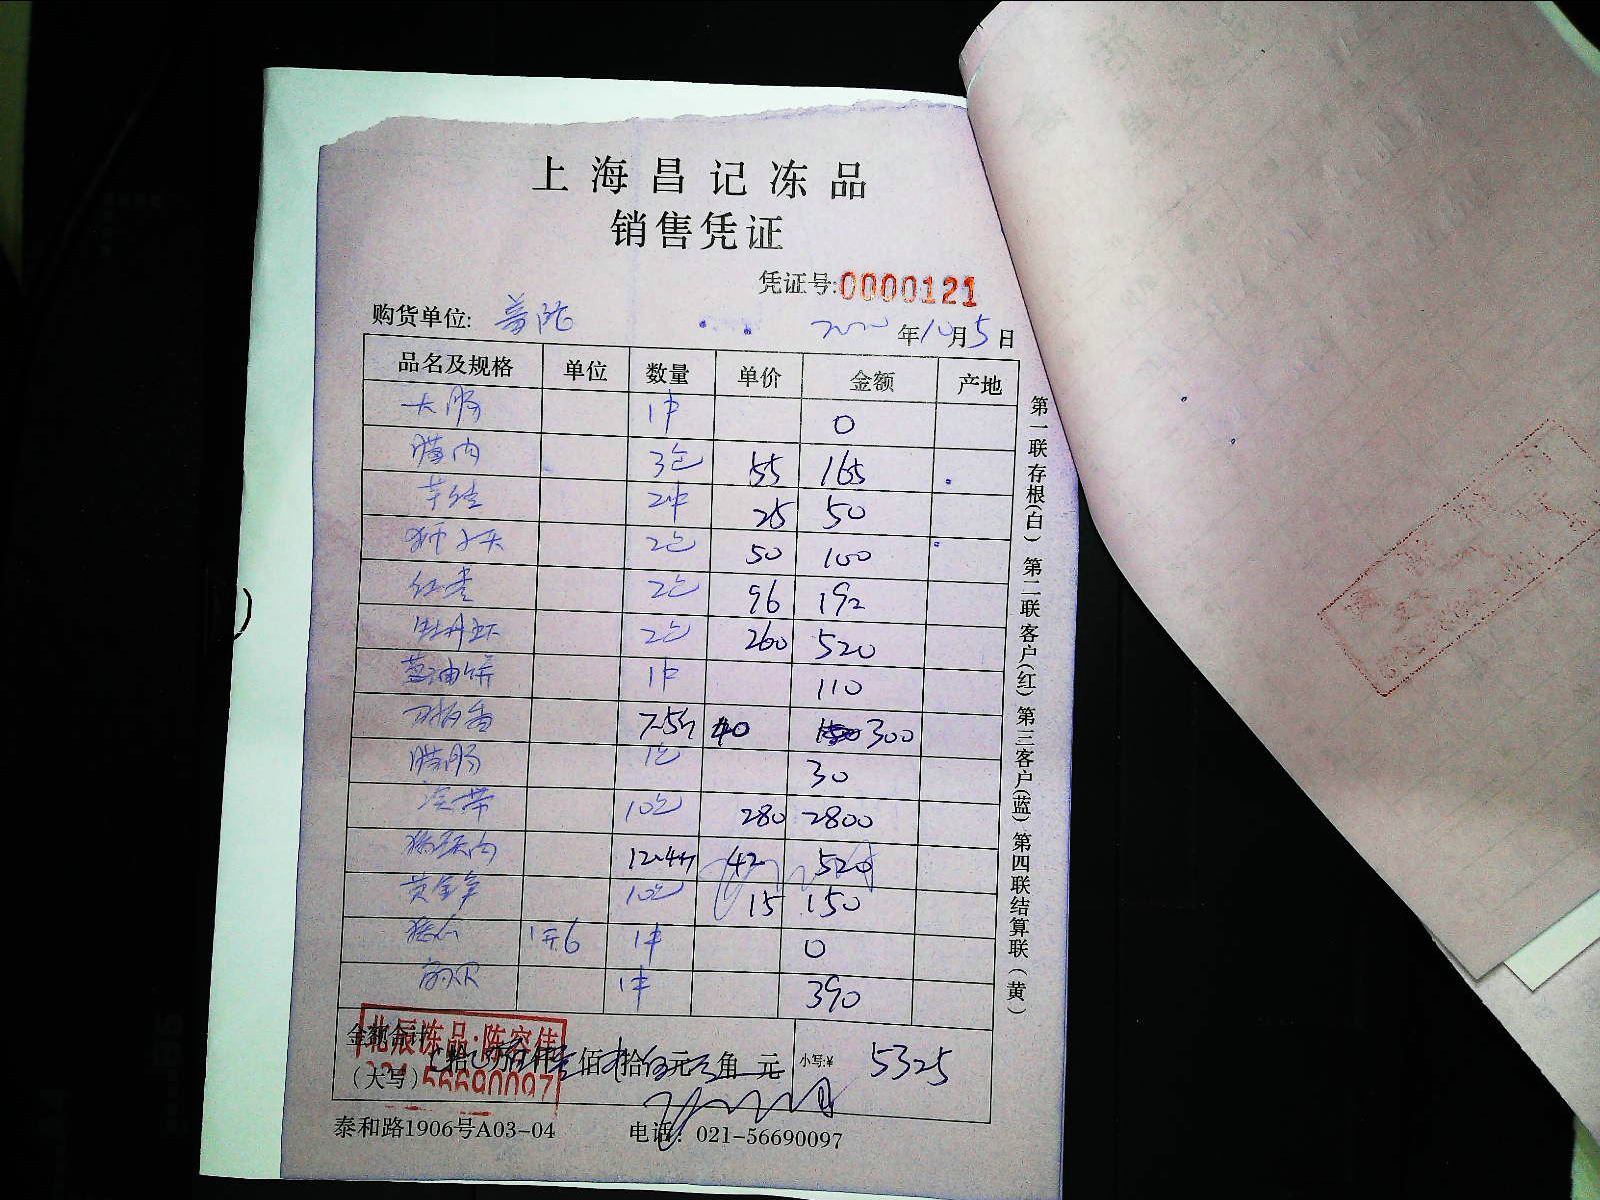 上海昌记冻品
销售凭证
凭证号:0000121
购货单位: 普陀 2020年10月5日
品名及规格 单位 数量 单价 金额 产地
大肠 1件 0
腊肉 3包 55 165
2件 25 50
狮子头 2包 50 100
红枣 2包 96 192
牡丹虾 2包 260 520
葱油饼 1件 110
刀板香 7.5斤 40 300
腊肠 1包 30
10包 280 2800
猪颈肉 12.4斤 42 520
黄金 10包 15 150
1开6 1件 0
1件 390
金额合计
(大写) 拾 万 仟 佰 拾 元 角 元 小写:¥ 5325
北辰冻品·陈容伟
021-56690097
泰和路1906号A03-04 电话: 021-56690097
第一联存根(白) 第二联客户(红) 第三客户(蓝) 第四联结算联(黄)